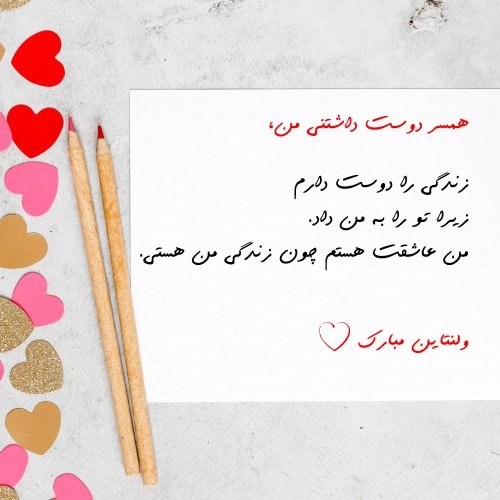 همسر دوست داشتنی من،
زندگی را دوست دارم
زیرا تو را به من داد.
من عاشقت هستم چون زندگی من هستی.
ولنتاین مبارک